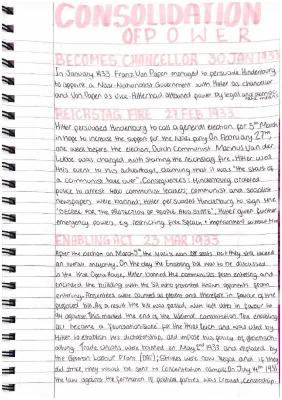 CONSOLIDATION
OF POWER
BECOMES CHANCELLOR 30 JAN 1933
In January 1933 Franz Von Papen managed to persuade Hindenburg
to appoint a Nazi-Nationalist Government with Hitler as chancellor
and Von Papen as vice. Hitler had attained power by legal and
REICHSTAG FIRE 27 FEB 1933
Hitler persuaded Hindenburg to call a general election for 5th March
in hope to increase the support for the Nazi party. On February 27th
one week before the election, Dutch Communist Marinus Van der
Lubbe was charged with starting the Reichstag fire. Hitler used
this event to his advantage, claiming that it was "the start of
a communist take over". Consequences: Hindenburg ordered
police to arrest communist leaders; communist and socialist
newspapers were banned; Hitler persuaded Hindenburg to sign the
"DECREE FOR THE PROTECTION OF PEOPLE AND STATE"; Hitler given further
emergency powers, eg restricting free speech + imprisonment without
ENABLING ACT 23 MAR 1933
After the election on March 5th the Nazis won seats but they still needed
an overall majority. On the day the Enabling Act was to be discussed
in the Kroll Opera House, Hitler banned the communists from entering and
encircled the building with the SA who prevented known opponents from
entering. Absentees were counted as present and therefore in favour of the
proposed bill. As a result the bill was passed, with votes in favour to
94 against. This marked the end of the Weimar constitution. The enabling
act became a 'foundation stone' for the third Reich and was used by
Hitler to establish his dictatorship, and impose his policy of gleichschal-
tung. Trade Unions were banned on May 2nd 1933 and replaced by the
German Labour Front (DAF); Strikes were now illegal and if they
did strike, they would be sent to concentration camps; On July 14th 1933
the law against the formation of political parties was created, censorship.